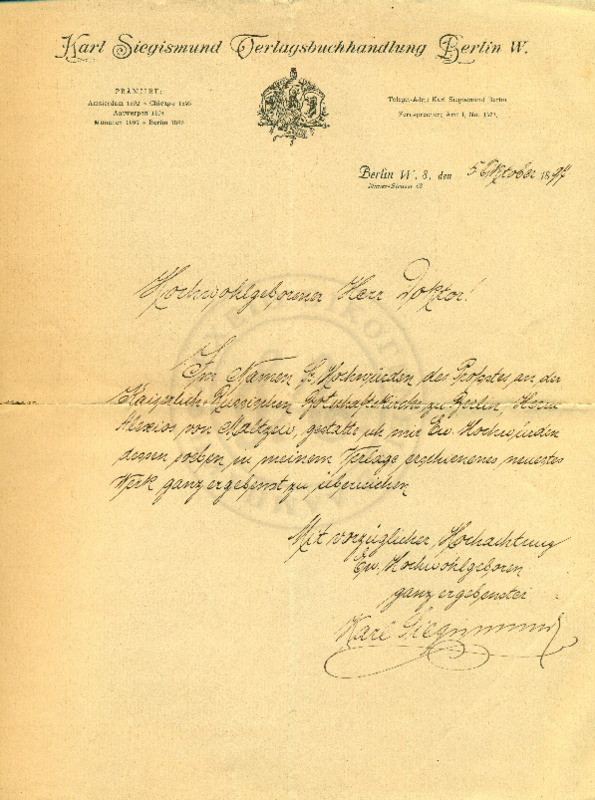 Karl Siegismund Verlagsbuchhandlung Berlin W.
PRÄMIIRT:
Amsterdam 1892 • Chicago 1893
Antwerpen 1894
• Berlin
Telegr.-Adr.: Karl Siegismund Berlin
Fernsprecher: Amt I, No.
Berlin W. 8, den 5 Oktober 1897
Hochwohlgeborener Herr Doktor!
Im Namen Sr. Hochwürden des Propstes an der
Kaiserlich-Russischen Botschaftskirche zu Berlin, Herrn
Alexios von Maltzew, gestatte ich mir Ew. Hochwürden
dessen soeben in meinem Verlage erschienenes neuestes
Werk ganz ergebenst zu überreichen
Mit vorzüglicher Hochachtung
Ew. Hochwohlgeboren
ganz ergebenster
Karl Siegismund